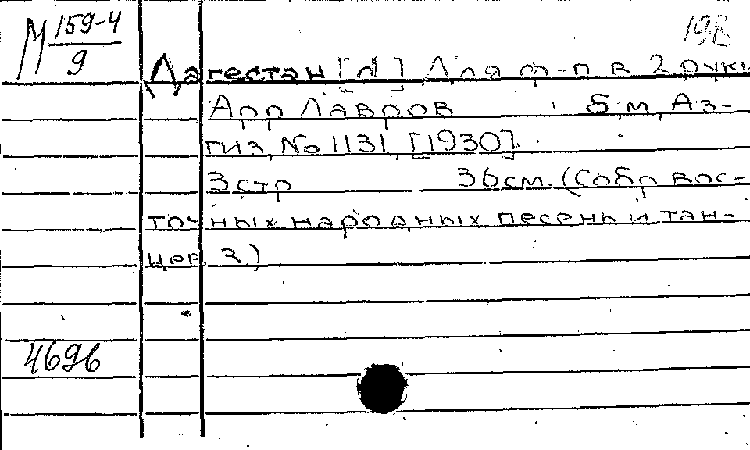 М 159-4
9
Дагестан [d] Для ф-п в 2 руки
Арр Лавров Б.м, Аз-
гиз, № 1131, [1930].
3 стр 36 см. (Собр вос-
точных народных песень и тан-
цев 2.)
4696